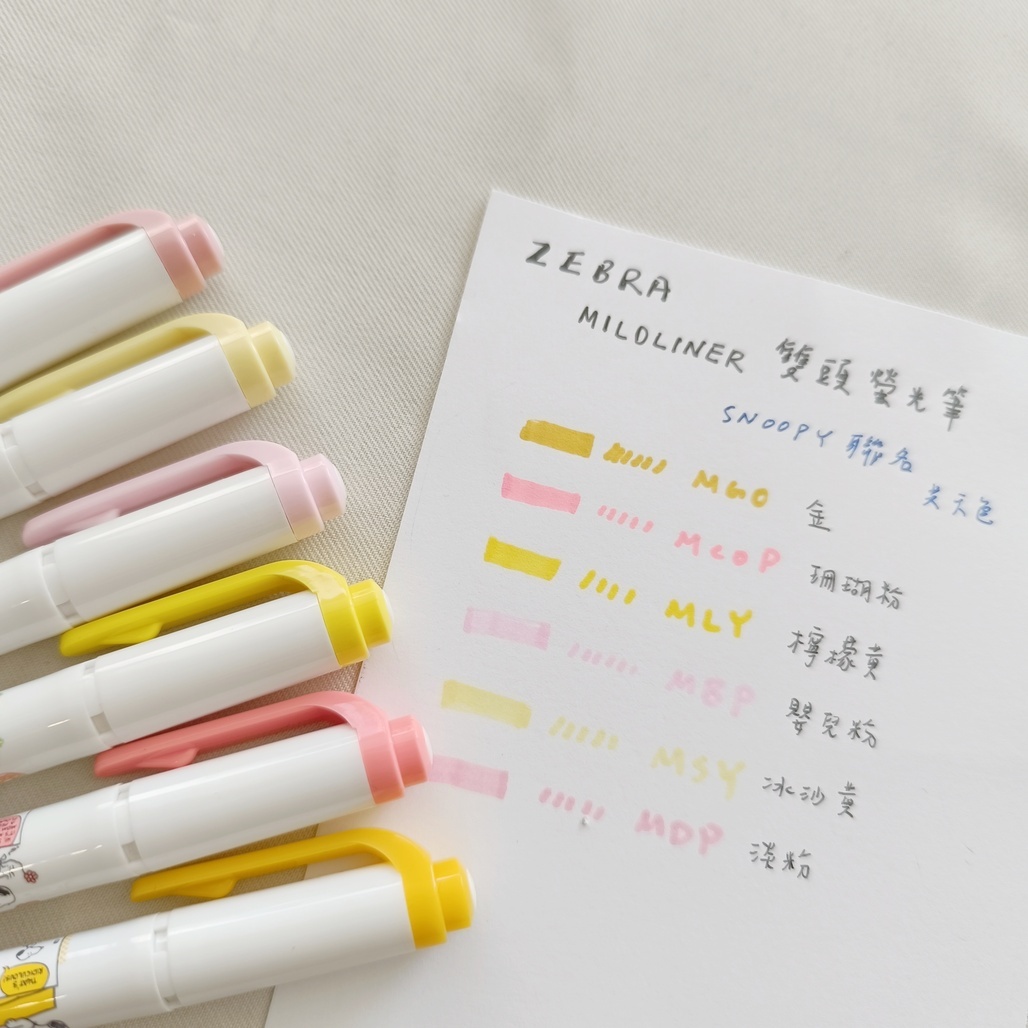 ZEBRA
MILDLINER 雙頭螢光筆
SNOOPY 聯名
共六色
MGO 金
MCOP 珊瑚粉
MLY 檸檬黃
MBP 嬰兒粉
MSY 冰沙黃
MDP 淡粉
THAT'S
RIDICULOUS!